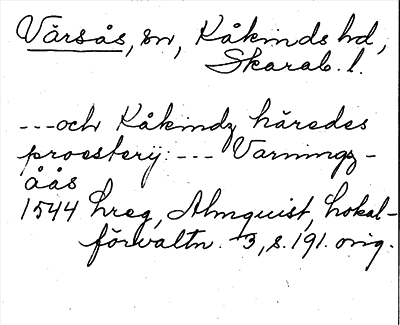 Vårsås, sn, Kåkinds hd,
Skarab. l.
---och Kåkindz häredes
proesterij: --- Varningz-
åås
1544 hreg, Almquist, Lokal-
förvaltn. 3, s. 191. orig.